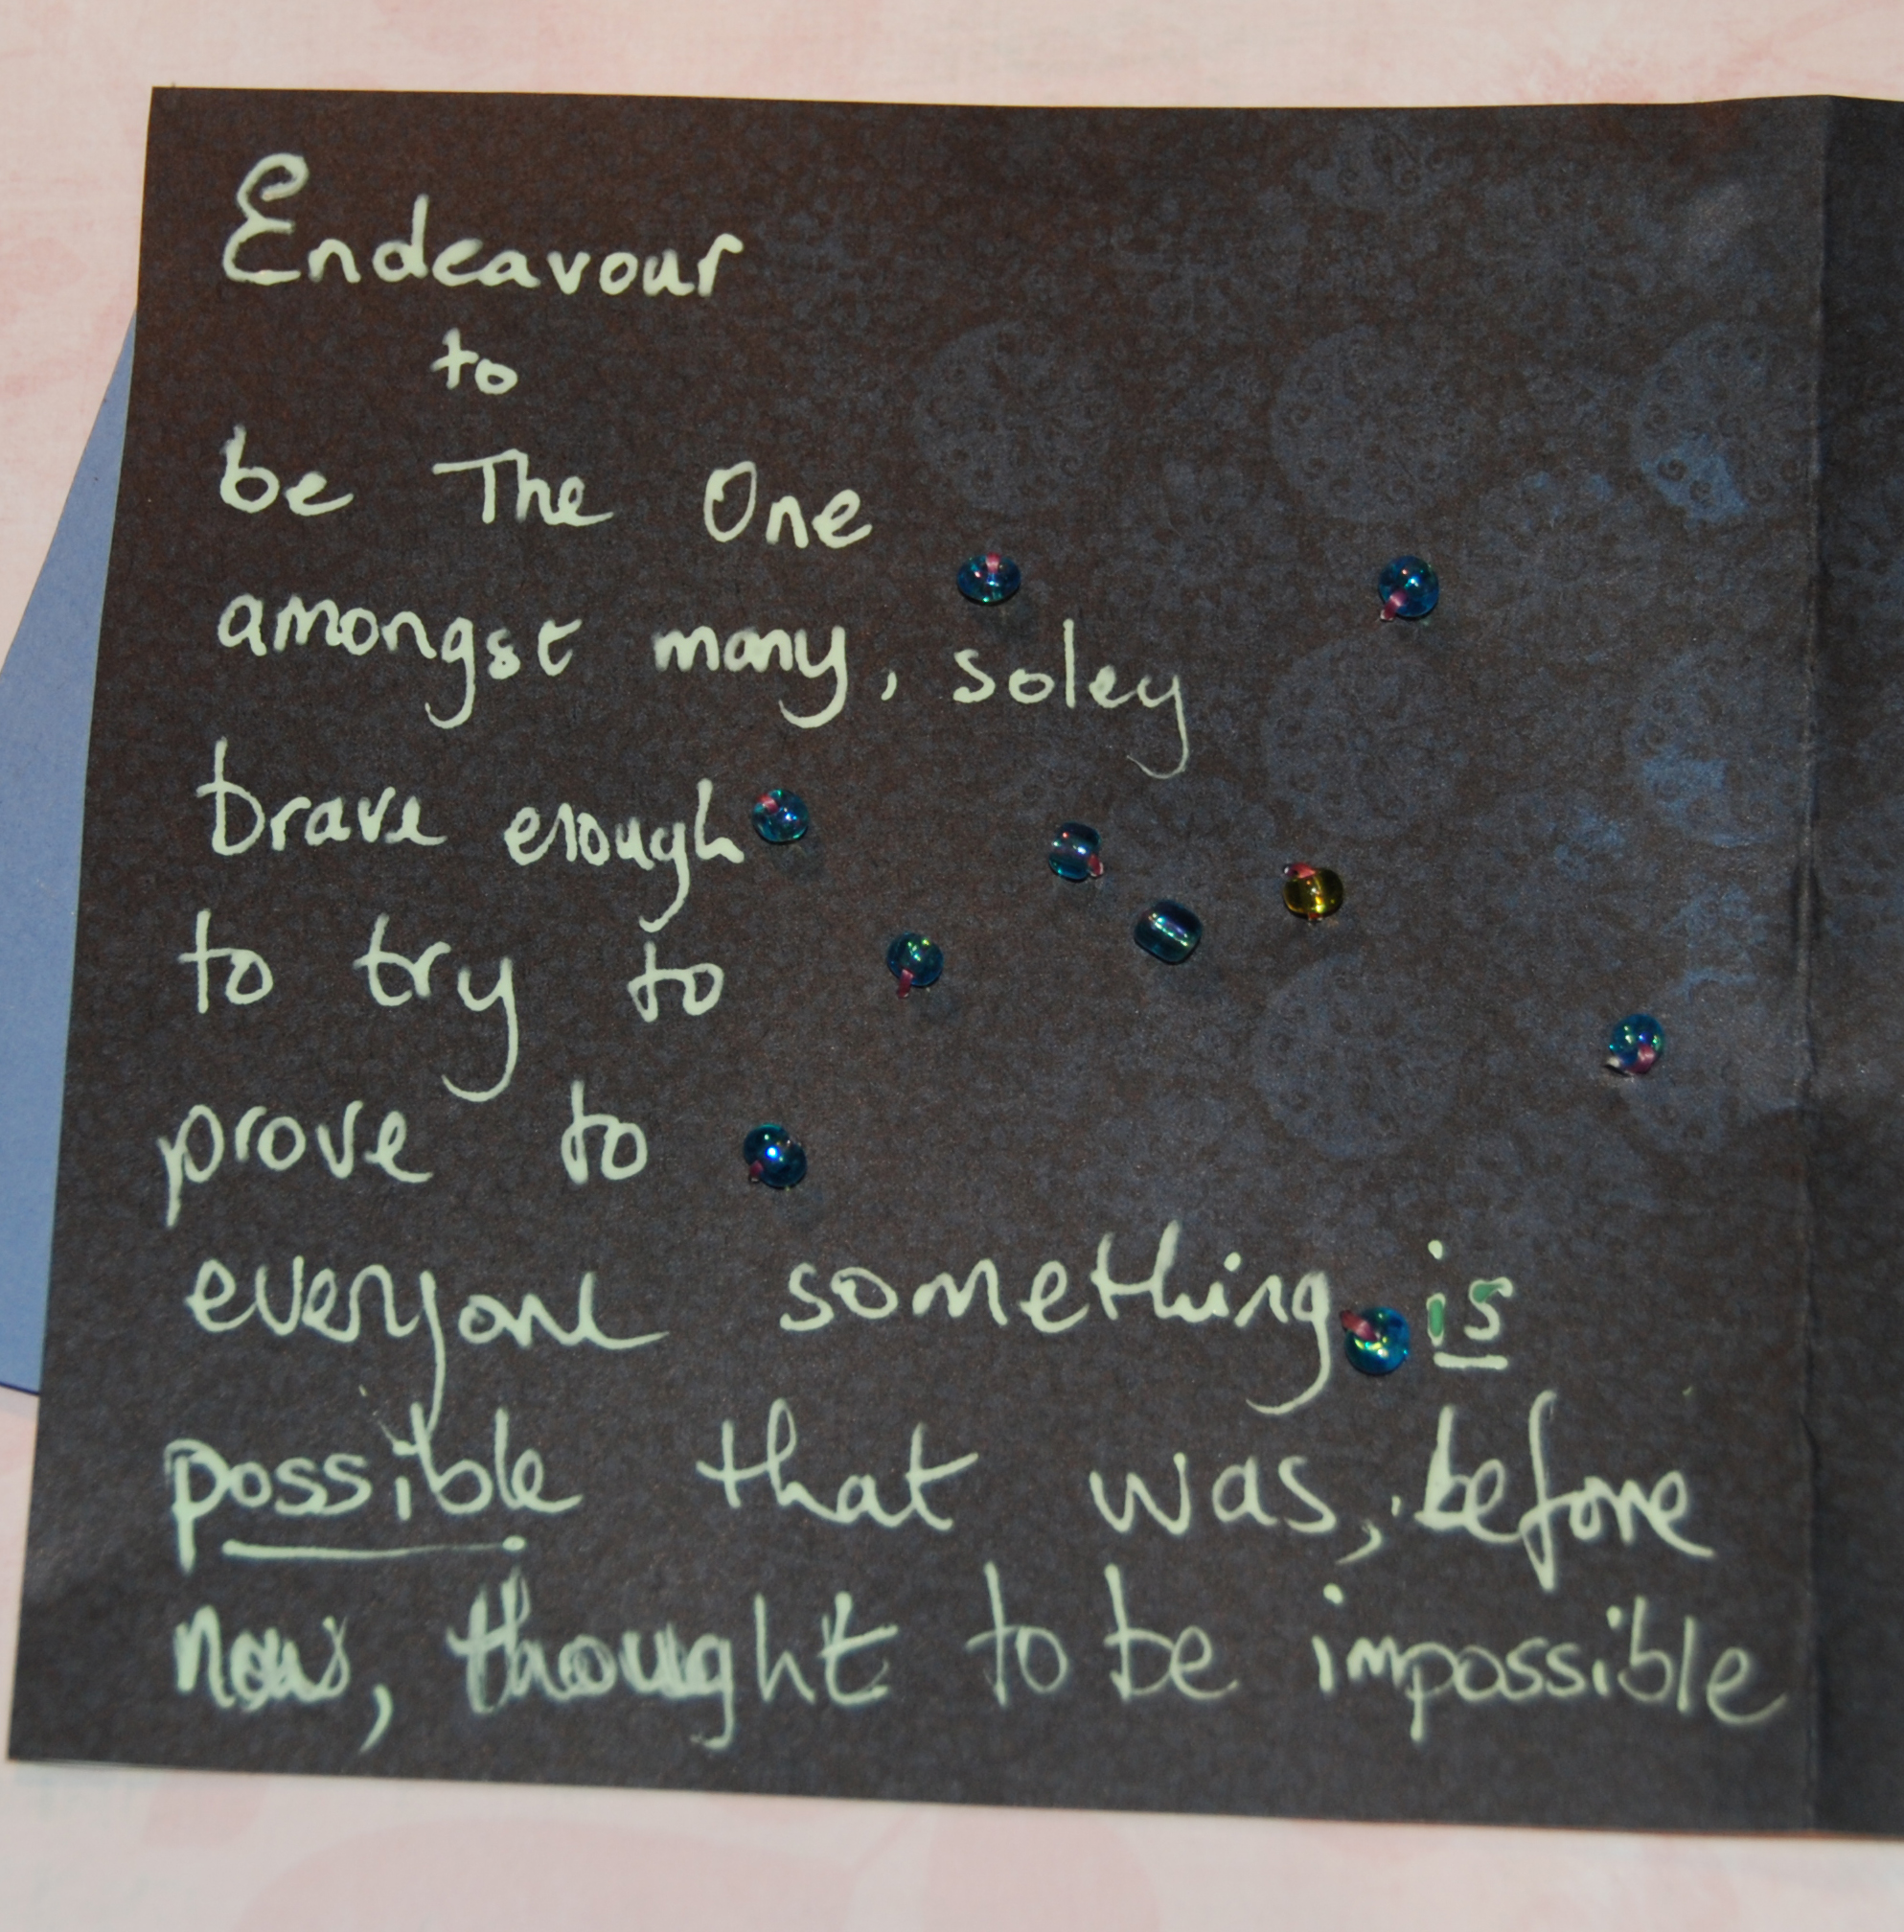 Endeavour
to
be The One
amongst many, soley
brave enough
to try to
prove to
everyone something is
possible that was, before
now, thought to be impossible